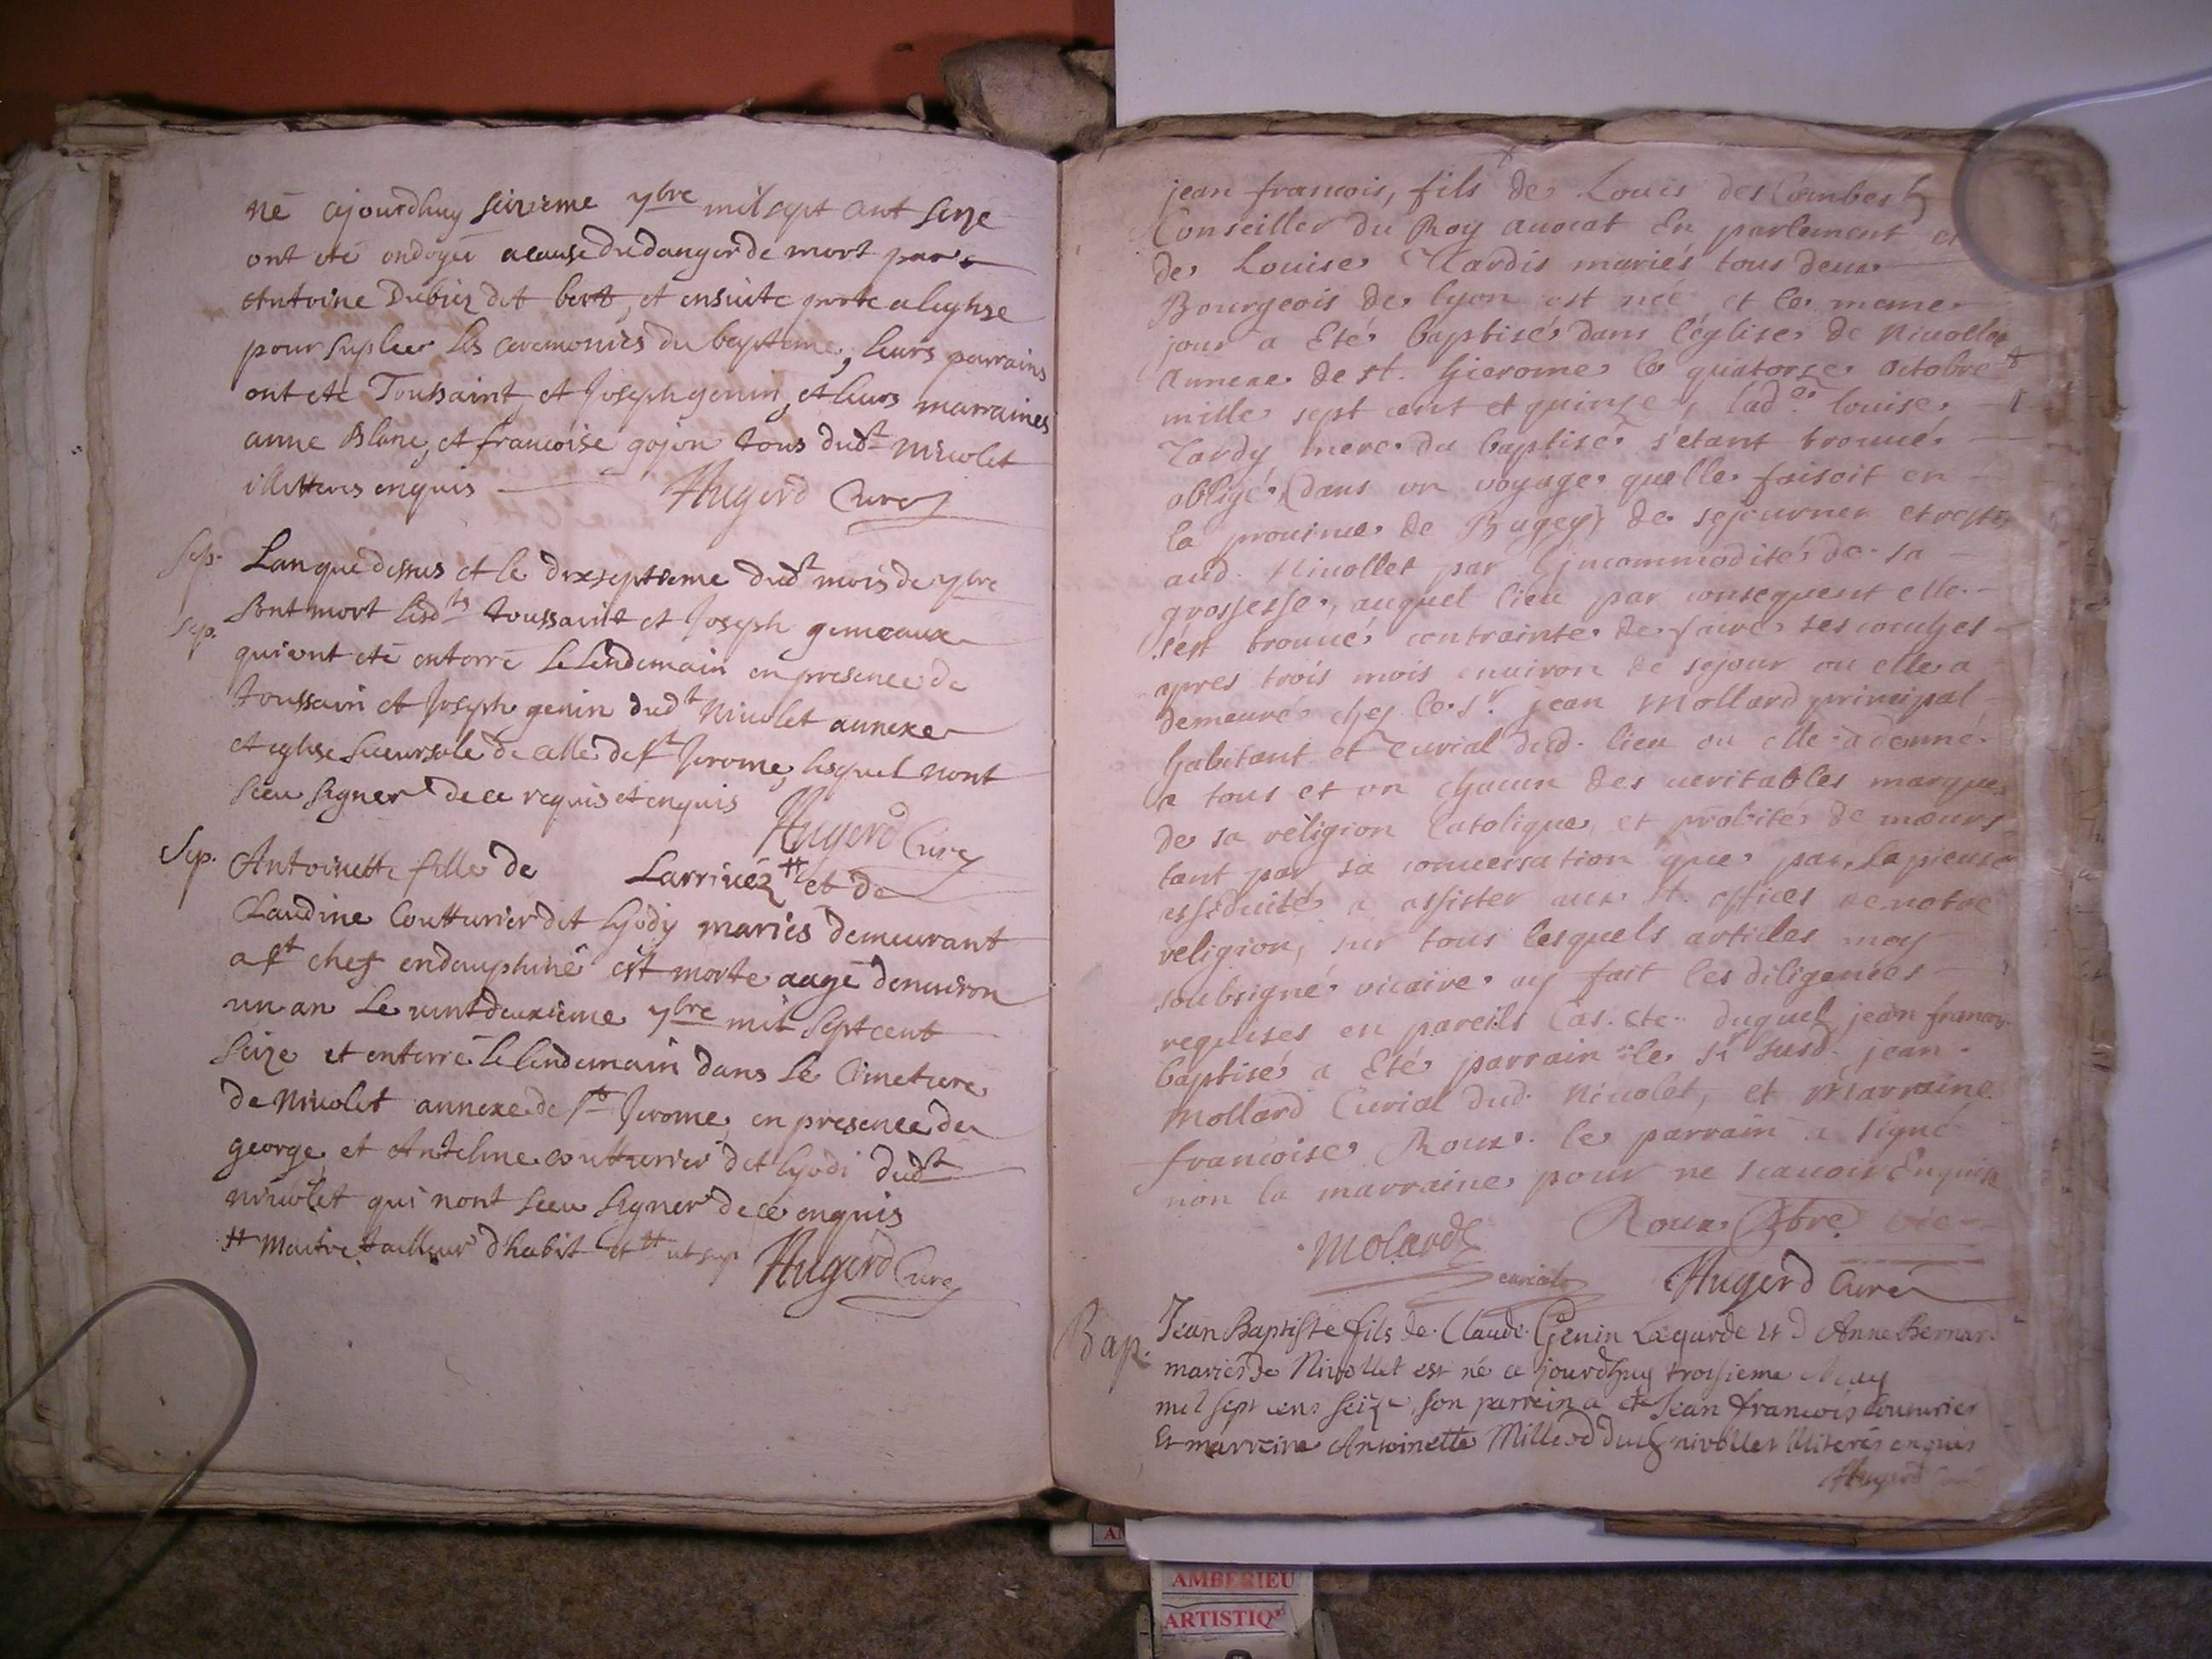 né ajourdhuy seizieme 7bre mil sept cent seize
ont ete ondoyé acause du danger de mort par
Antoine Dubiez dit bert, et ensuite porté a leglise
pour supleer les ceremonies du bapteme, leurs parrains
ont ete Toussaint et Joseph genin, et leurs marraines
anne Blanc, et francoise gojon tous dudt Nivolet
illitteres enquis Hugerd Curé
Sep. Lan que dessus et le dixseptieme dudt mois de 7bre
Sep. sont mort lesdts toussaint et Joseph gemeaux
qui ont eté enterré le lendemain en presence de
toussain et Joseph genin dudt Nivolet annexe
et eglise sucursale de celle de st Jerome, lesquel nont
sceu signer de ce requis et enquis
Hugerd Curé
Sep. Antoinette fille de Larrivéz # et de
Claudine Coutturier dit hjody mariés demeurant
a st chef en dauphiné est morte aagé denuiron
un an le vint deuxieme 7bre mil sept cent
seize et enterré le lendemain dans le cimetiere
de Nivolet annexe de st Jerome, en presence de
george, et Antelme coutturier dit hjodi dudt
nivolet qui nont sceu signer de ce enquis
# maitre tailleur dhabit et # ut sup Hugerd Curé
jean francois, fils de Louis des Combes
Conseiller du Roy auocat En parlement et
de Louise Tardis mariés tous deux
Bourgeois de lyon est née et le meme
jour a Eté baptisé dans l'église de Niuollet
annexe de st. hierome le quatorze octobre
mille sept cent et quinze, lade louise
Tardy mere du baptisé s'etant trouué
obligé, (dans un voyage quelle faisoit en
la prouince de Bugey) de sejourner et rester
aud. Niuollet par l'jncommodité de sa
grossesse, auquel lieu par consequent elle
s'est trouué contrainte de faire ses couches
apres trois mois enuiron de sejour ou elle a
demeuré chez le sr. jean Mollard principal
habitant et curial dud. lieu ou elle a donné
a tous et un chacun des ueritables marques
de sa réligion Catolique, et probité de mœurs
tant par sa conuersation que par la pieuse
assiduité a assister aux st. offices de notre
religion, sur tous lesquels articles moy
soubsigné vicaire ay fait les diligences
requises en pareils Cas. etc. duquel jean francois
baptisé a Eté parrain le sr susd. jean
Mollard Curial dud. Niuolet, et Marraine
francoise Roux. le parrain a signé
non la marraine pour ne scauoir Enquise
Molard Roux Pbre vic
curial Hugerd Curé
Bap. Jean Baptiste fils de Claude Genin Lagarde et d Anne Bernard
mariés de Nivollet est né ce jourdhuy troisieme May
mil sept cens seize, son parrein a eté Jean francois Couturier
Et marreine Antoinette Milliod dud nivollet illiterés enquis
Hugerd Curé
AMBERIEU
ARTISTIQ